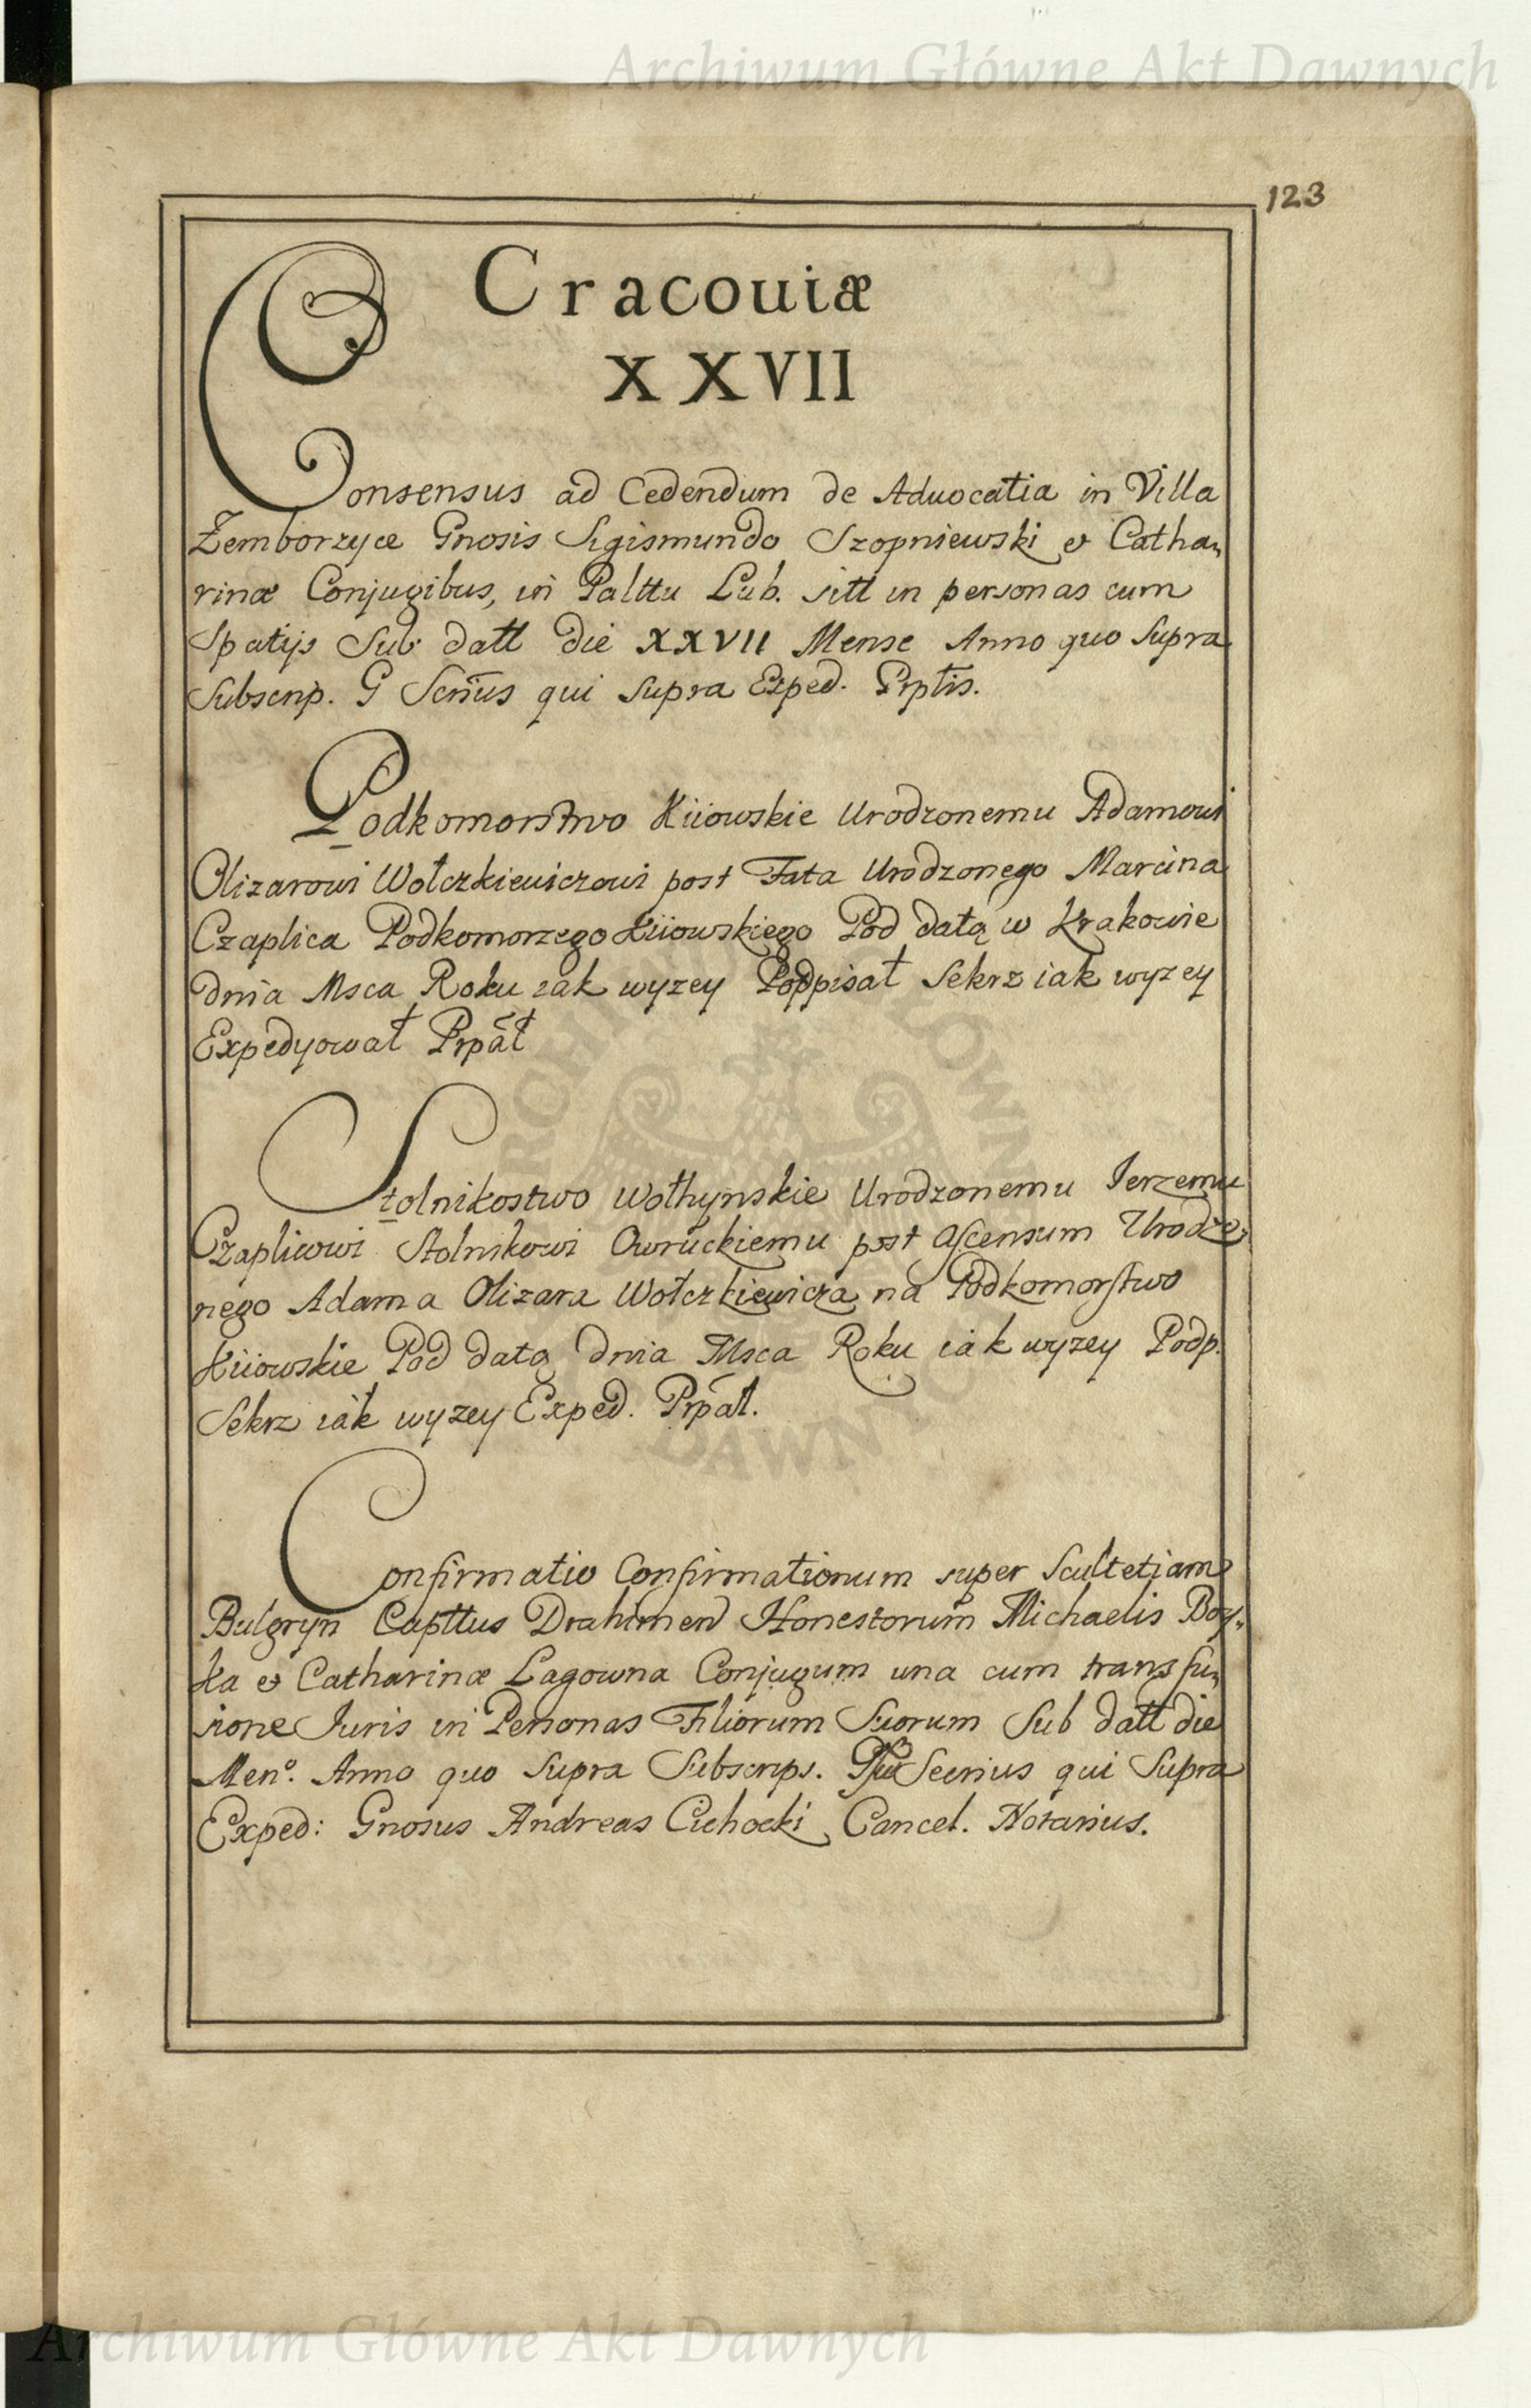 Archiwum Główne Akt Dawnych
123
Cracouiæ
XXVII
Consensus ad Cedendum de Aduocatia in Villa
Zemborzyce Gnosis Sigismundo Szopniewski et Catha„
rinæ Conjugibus, in Palttu Lub. sitt in personas cum
Spatijs Sub datt die XXVII Mense Anno quo Supra
Subscrip. G Scrius qui supra Exped. Prptis.
Podkomorstwo Kiiowskie Urodzonemu Adamowi
Olizarowi Wołczkiewiczowi post Fata Urodzonego Marcina
Czaplica Podkomorzego Kiiowskiego Pod datą w Krakowie
dnia Msca Roku iak wyzey Podpisał Sekrz iak wyzey
Expedyował Prpał
Stolnikostwo Wołhynskie Urodzonemu Ierzemu
Czaplicowi Stolnikowi Owruckiemu post ascensum Urodzo„
nego Adama Olizara Wołczkiewicza na Podkomorstwo
Kiiowskie Pod datą dnia Msca Roku iak wyzey Podp.
Sekrz iak wyzey Exped. Prpał.
Confirmatio Confirmationum super Scultetiam
Bulgryn Capttus Drahimen Honestorum Michaelis Boy„
ka et Catharinæ Lagowna Conjugum una cum transfu„
sione Iuris in Personas Filiorum Suorum Sub datt die
Men°. Anno quo supra Subscrips. Secrius qui Supra
Exped: Gnosus Andreas Cichocki Cancel. Notarius.
ARCHIWUM GŁÓWNE AKT DAWNYCH
Archiwum Główne Akt Dawnych